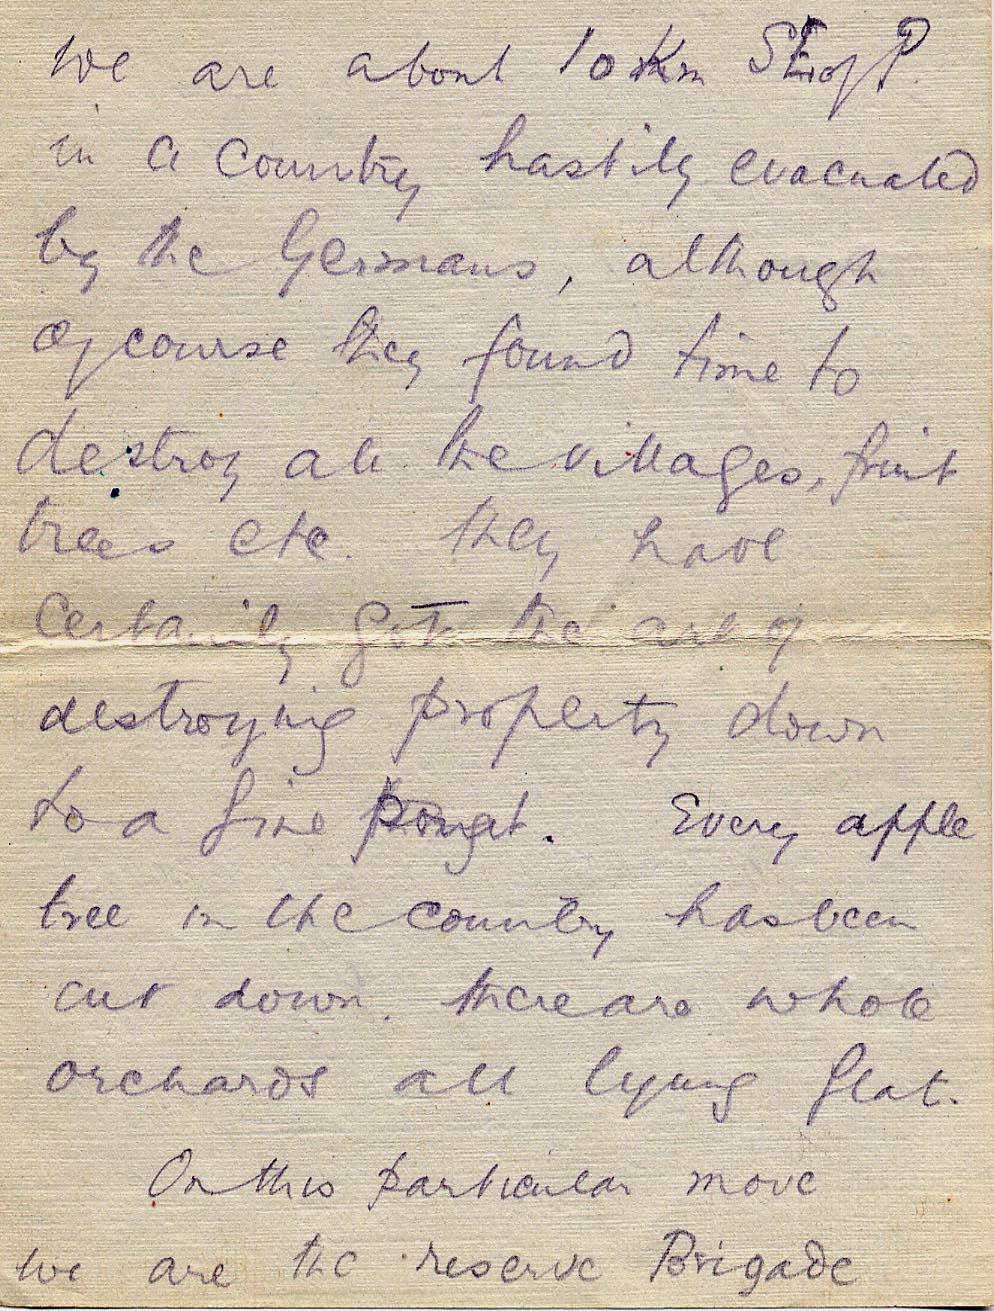 We are about 10 Km SE of P.
in a country hastily evacuated
by the Germans, although
of course they found time to
destroy all the villages, fruit
trees etc. They have
certainly got the art of
destroying property down
to a fine point. Every apple
tree in the country has been
cut down. There are whole
orchards all lying flat.
On this particular move
we are the reserve Brigade